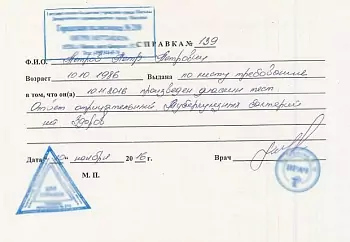 СПРАВКА № 139
Ф.И.О. Петров Петр Петрович
Возраст 10.10.1986 Выдана по месту требования
в том, что он(а) 10.11.2016 произведен диаскин тест
Ответ отрицательный Туберкулезных бактерий
нет Здоров
Дата ноября 2016 г. Врач
М. П.
ВРАЧА